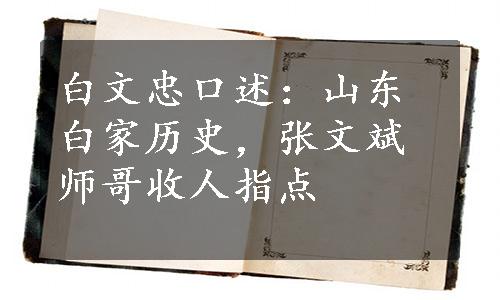 白文忠口述：山东
白家历史，张文斌
师哥收人指点